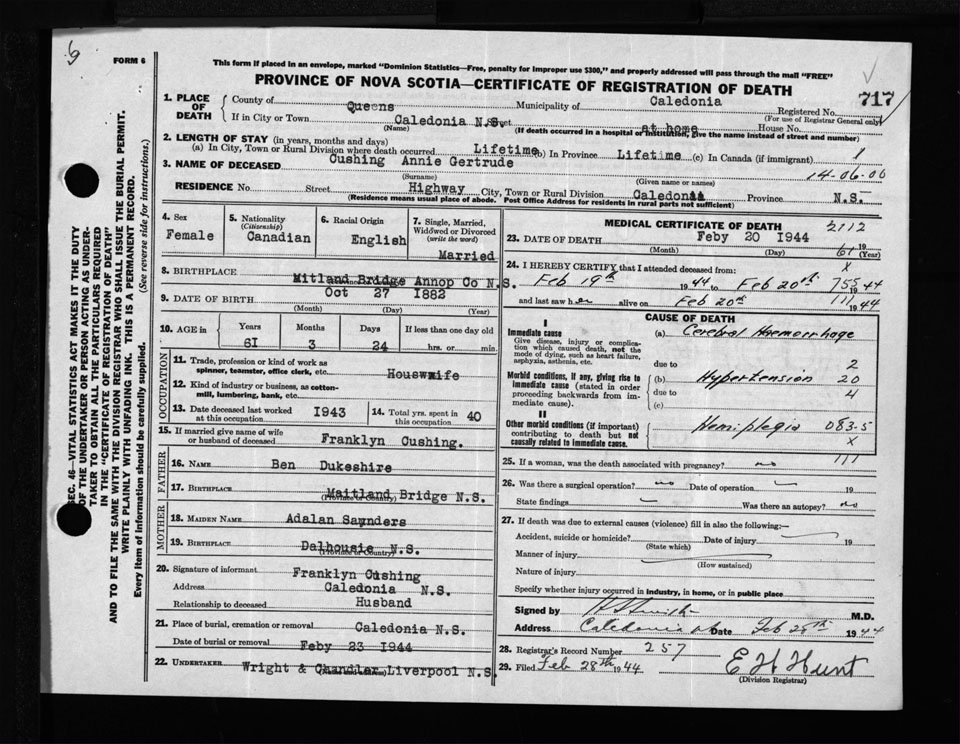 6
FORM 6
This form if placed in an envelope, marked "Dominion Statistics—Free, penalty for improper use $300," and properly addressed will pass through the mail "FREE"
PROVINCE OF NOVA SCOTIA—CERTIFICATE OF REGISTRATION OF DEATH
717
SEC. 46—VITAL STATISTICS ACT MAKES IT THE DUTY
OF THE UNDERTAKER OR PERSON ACTING AS UNDER-
TAKER TO OBTAIN ALL THE PARTICULARS REQUIRED
IN THE "CERTIFICATE OF REGISTRATION OF DEATH"
AND TO FILE THE SAME WITH THE DIVISION REGISTRAR WHO SHALL ISSUE THE BURIAL PERMIT.
WRITE PLAINLY WITH UNFADING INK. THIS IS A PERMANENT RECORD.
Every item of information should be carefully supplied. (See reverse side for instructions.)
1. PLACE OF DEATH
County of Queens Municipality of Caledonia Registered No.
(For use of Registrar General only)
If in City or Town Caledonia N.S. Street at home House No.
(Name) (If death occurred in a hospital or institution, give the name instead of street and number)
2. LENGTH OF STAY (in years, months and days)
(a) In City, Town or Rural Division where death occurred Lifetime (b) In Province Lifetime (c) In Canada (if immigrant) 1
3. NAME OF DECEASED Cushing Annie Gertrude
(Surname) (Given name or names) 14-06-00
RESIDENCE No. Street Highway City, Town or Rural Division Caledonia Province N.S.
(Residence means usual place of abode. Post Office Address for residents in rural parts not sufficient)
4. Sex
Female
5. Nationality
(Citizenship)
Canadian
6. Racial Origin
English
7. Single, Married, Widowed or Divorced
(write the word)
Married
8. BIRTHPLACE Mitland Bridge Annop Co N.S.
9. DATE OF BIRTH Oct 27 1882
(Month) (Day) (Year)
10. AGE in
Years Months Days If less than one day old
61 3 24 hrs. or min.
OCCUPATION
11. Trade, profession or kind of work as
spinner, teamster, office clerk, etc. Houswife
12. Kind of industry or business, as cotton-
mill, lumbering, bank, etc.
13. Date deceased last worked
at this occupation 1943
14. Total yrs. spent in
this occupation 40
15. If married give name of wife
or husband of deceased Franklyn Cushing.
FATHER
16. NAME Ben Dukeshire
17. BIRTHPLACE Maitland Bridge N.S.
(Province or Country)
MOTHER
18. MAIDEN NAME Adalan Saunders
19. BIRTHPLACE Dalhousie N.S.
(Province or Country)
20. Signature of informant Franklyn Cushing
Address Caledonia N.S.
Relationship to deceased Husband
21. Place of burial, cremation or removal Caledonia N.S.
Date of burial or removal Feby 23 1944
22. UNDERTAKER Wright & Chandler Liverpool N.S.
(Name and address)
MEDICAL CERTIFICATE OF DEATH 2112
23. DATE OF DEATH Feby 20 1944
(Month) (Day) 61 19 (Year)
24. I HEREBY CERTIFY that I attended deceased from: X
Feb 19th 1944 to Feb 20th 755 44
and last saw her alive on Feb 20th 111 1944
CAUSE OF DEATH
I
Immediate cause
Give disease, injury or complica-
tion which caused death, not the
mode of dying, such as heart failure,
asphyxia, asthenia, etc.
(a) Cerebral Haemorrhage
due to 2
Morbid conditions, if any, giving rise to
immediate cause (stated in order
proceeding backwards from im-
mediate cause).
(b) Hypertension 20
due to 4
(c)
II
Other morbid conditions (if important)
contributing to death but not
causally related to immediate cause.
Hemiplegia 083.5
X
111
25. If a woman, was the death associated with pregnancy? no
26. Was there a surgical operation? no Date of operation 19
State findings Was there an autopsy? no
27. If death was due to external causes (violence) fill in also the following:—
Accident, suicide or homicide? Date of injury 19
(State which)
Manner of injury
(How sustained)
Nature of injury
Specify whether injury occurred in industry, in home, or in public place
Signed by M.D.
Address Caledonia Date Feb 28th 1944
28. Registrar's Record Number 257
29. Filed Feb 28th 1944 E H Hunt
(Division Registrar)